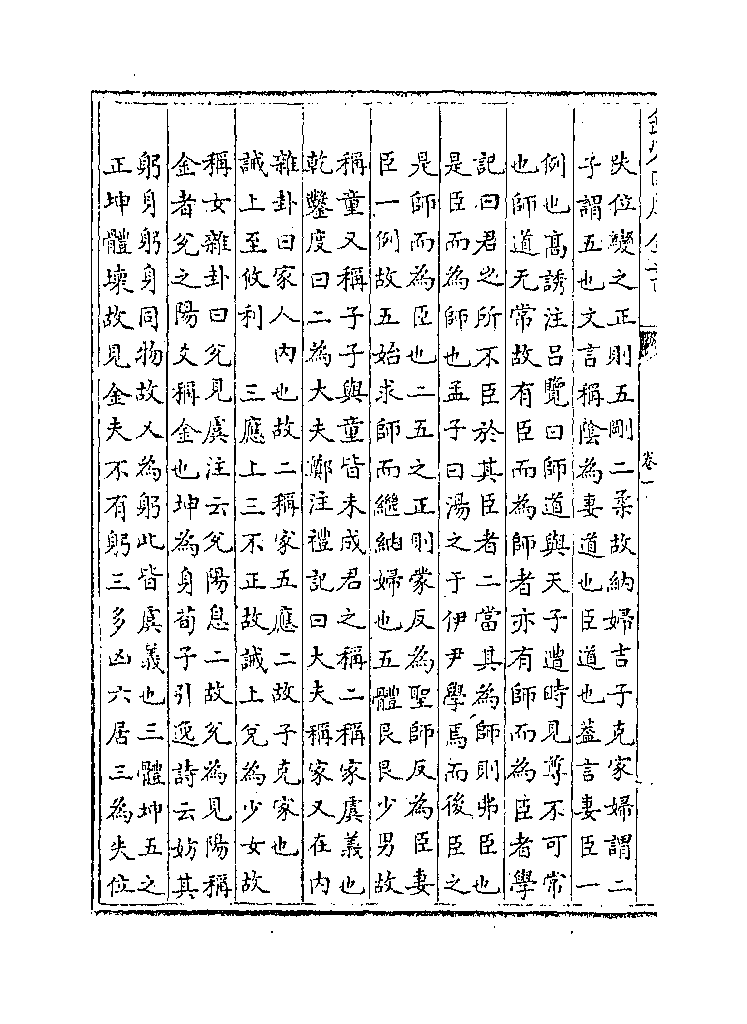 卷一
失位變之正則五剛二柔故納婦吉子克家婦謂二
子謂五也文言稱陰為妻道也臣道也葢言妻臣一
例也髙誘注吕覽曰師道與天子遭時見尊不可常
也師道无常故有臣而為師者亦有師而為臣者學
記曰君之所不臣於其臣者二當其為師則弗臣也
是臣而為師也孟子曰湯之于伊尹學焉而後臣之
是師而為臣也二五之正則蒙反為聖師反為臣妻
臣一例故五始求師而繼納婦也五體艮艮少男故
稱童又稱子子與童皆未成君之稱二稱家虞義也
乾鑿度曰二為大夫鄭注禮記曰大夫稱家又在内
雜卦曰家人内也故二稱家五應二故子克家也
誡上至攸利　三應上三不正故誡上兌為少女故
稱女雜卦曰兌見虞注云兌陽息二故兌為見陽稱
金者兌之陽爻稱金也坤為身荀子引逸詩云妨其
躬身躬身同物故又為躬此皆虞義也三體坤五之
正坤體壞故見金夫不有躬三多凶六居三為失位